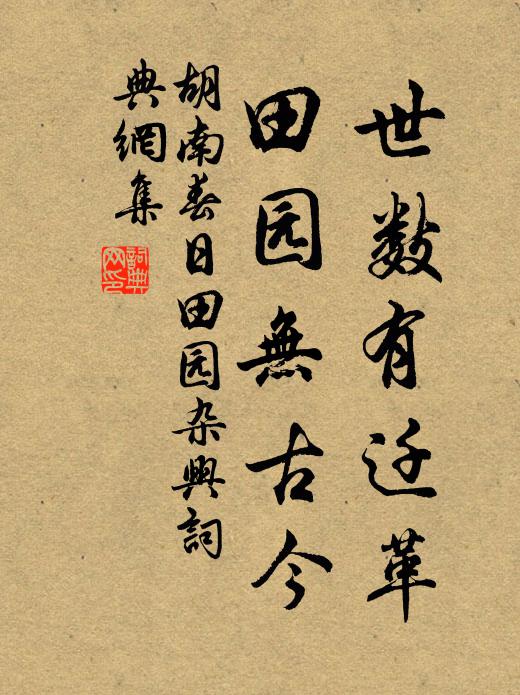 世数有迁革
田园無古今
胡南春日田园杂興詞
典網集
詞典网印